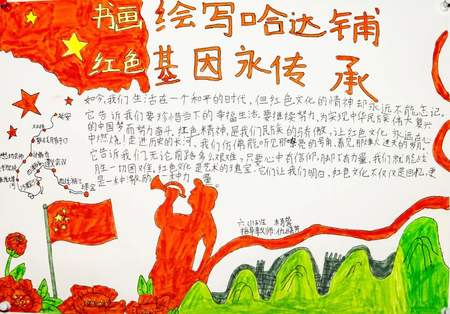 书画 绘写哈达铺
红色 基因永传承
如今,我们生活在一个和平的时代,但红色文化的精神却永远不能忘记。
它告诉我们要珍惜当下的幸福生活,要继续努力,为实现中华民族伟大复兴
的中国梦而努力奋斗。红色精神,是我们民族的骄傲,让红色文化永远在心
中燃烧!走进历史的长河,我们仿佛能听见那嘹亮的号角,看见那雄人进夫的剪
它告诉我们无论前路多么艰难,只要心中有信仰,脚下有力量,我们就能战
胜一切困难,红色文化是艺术的瑰宝。它们让我们明白,红色文化不仅仅是回忆,更
是一种激励,一种力量。
延安
六
指导教师